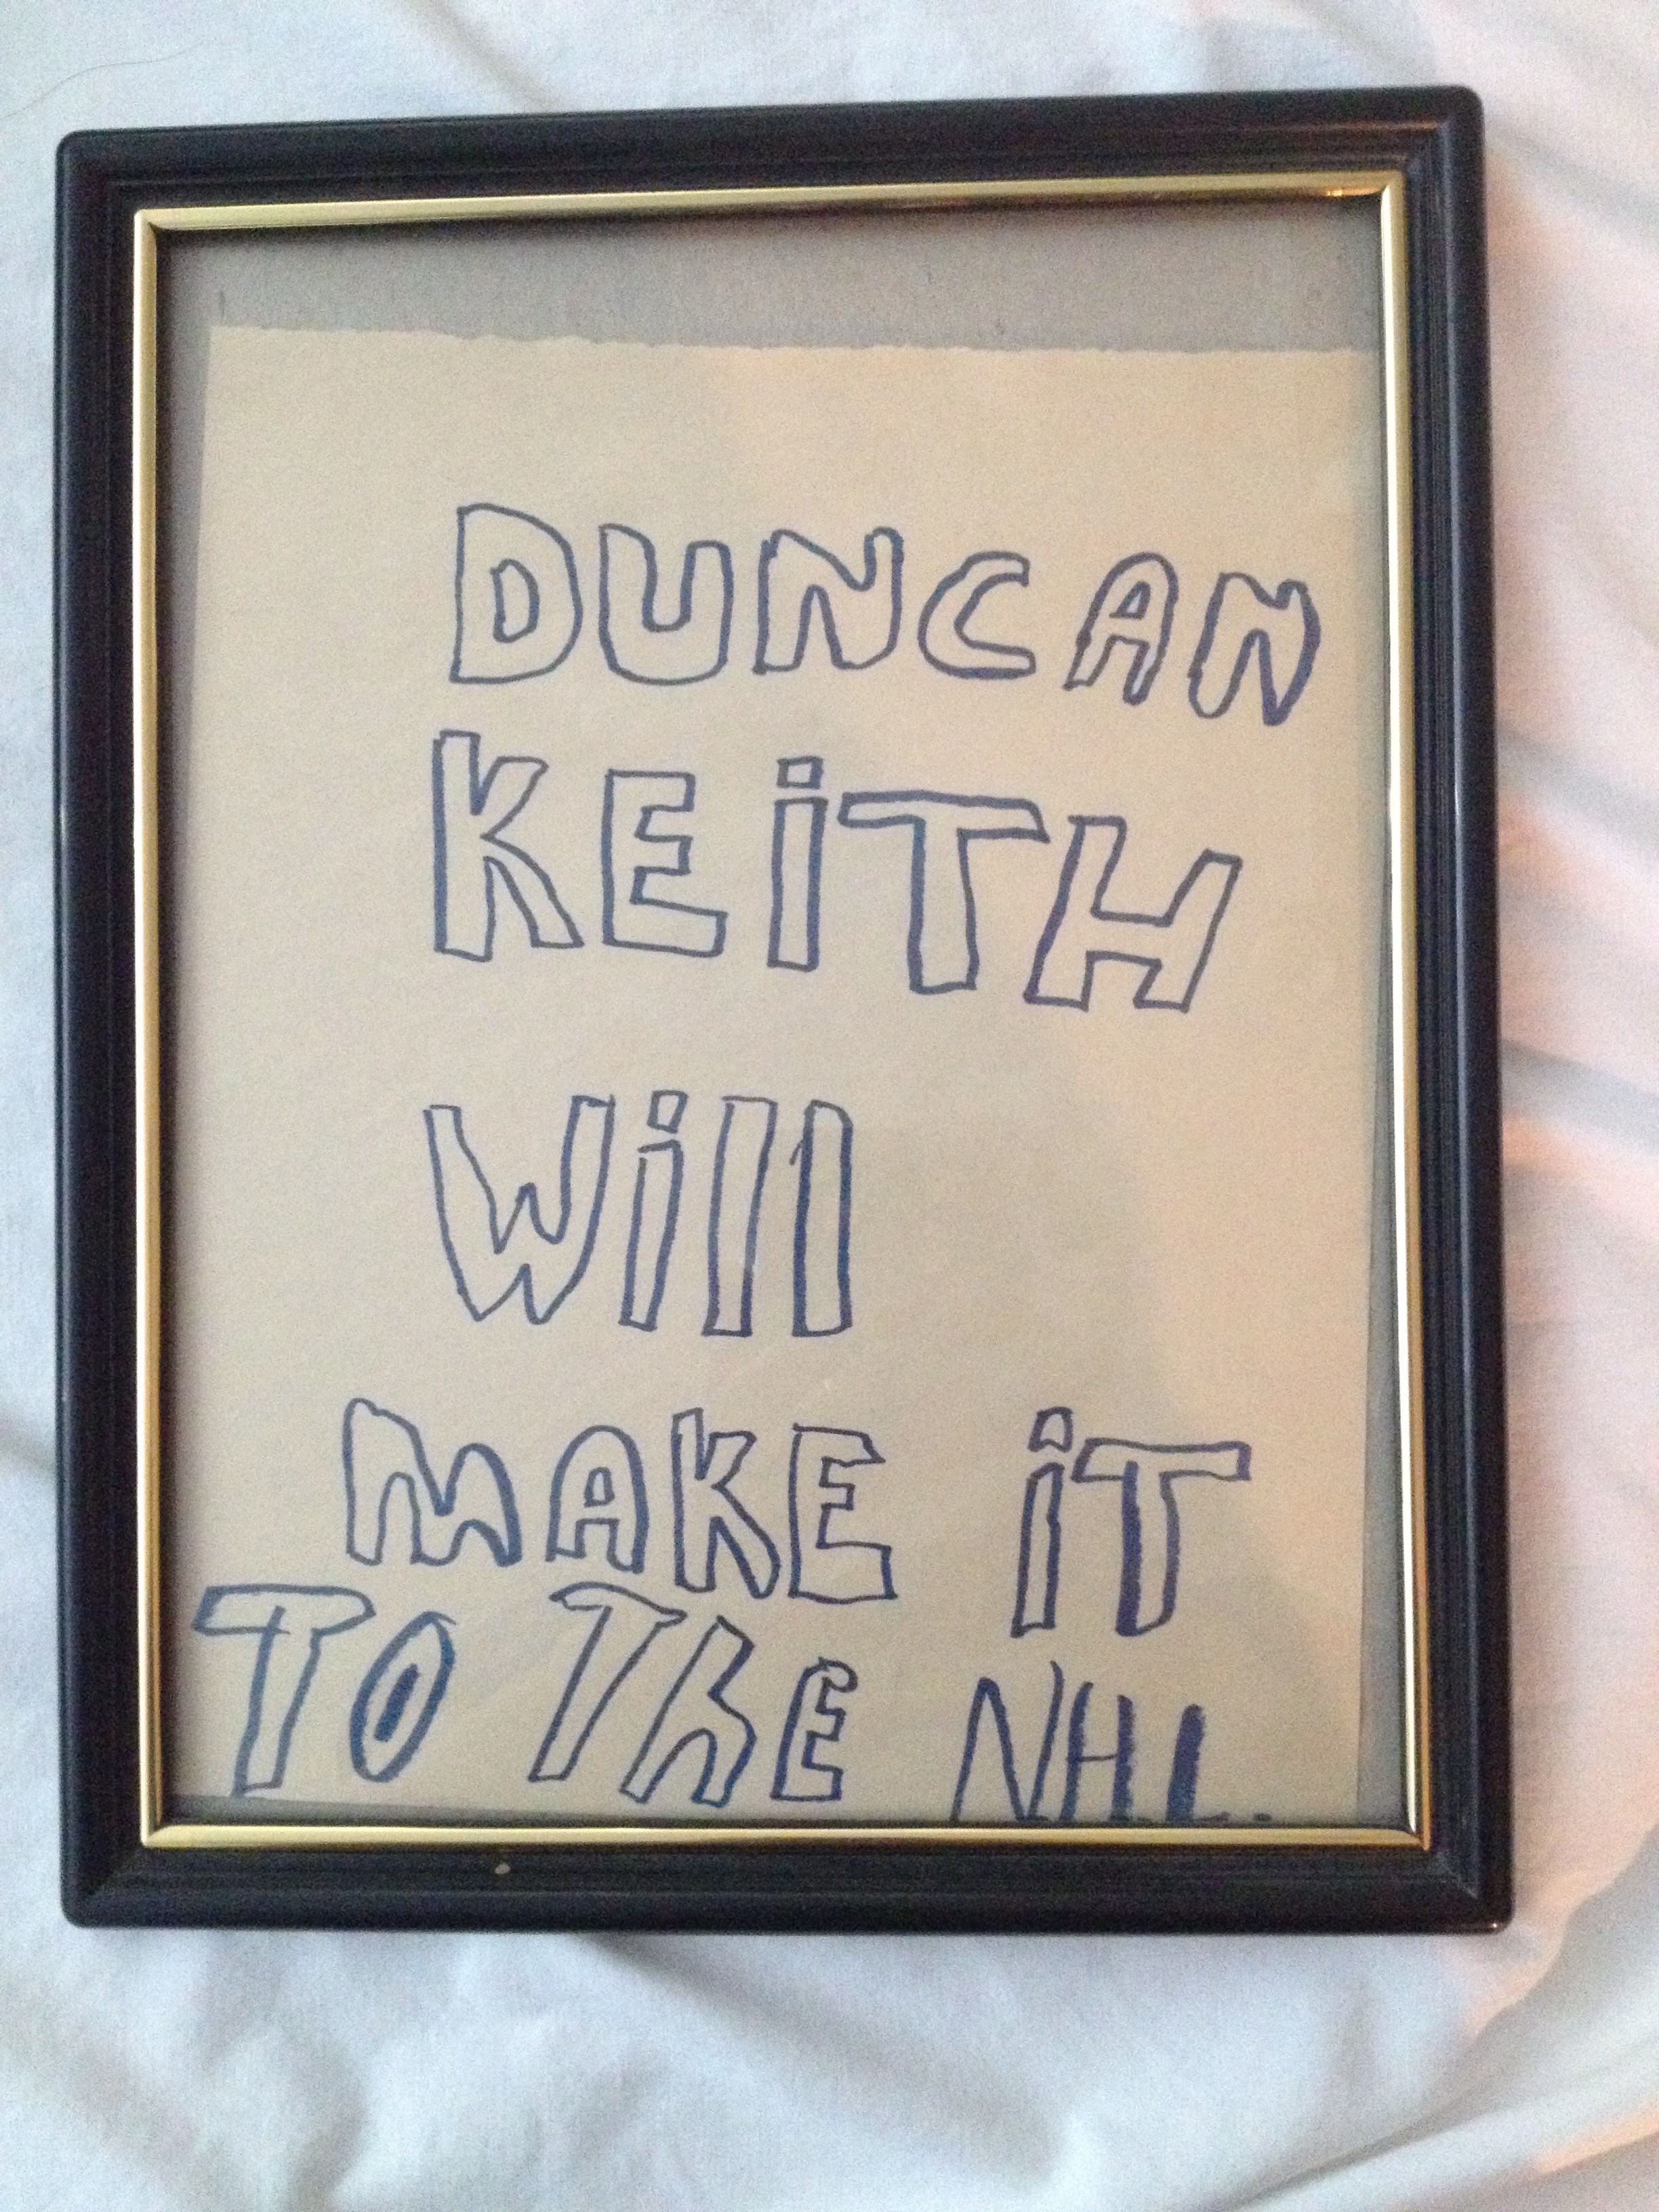 DUNCAN
KEiTH
Will
MAKE iT
TO ThE NHL.